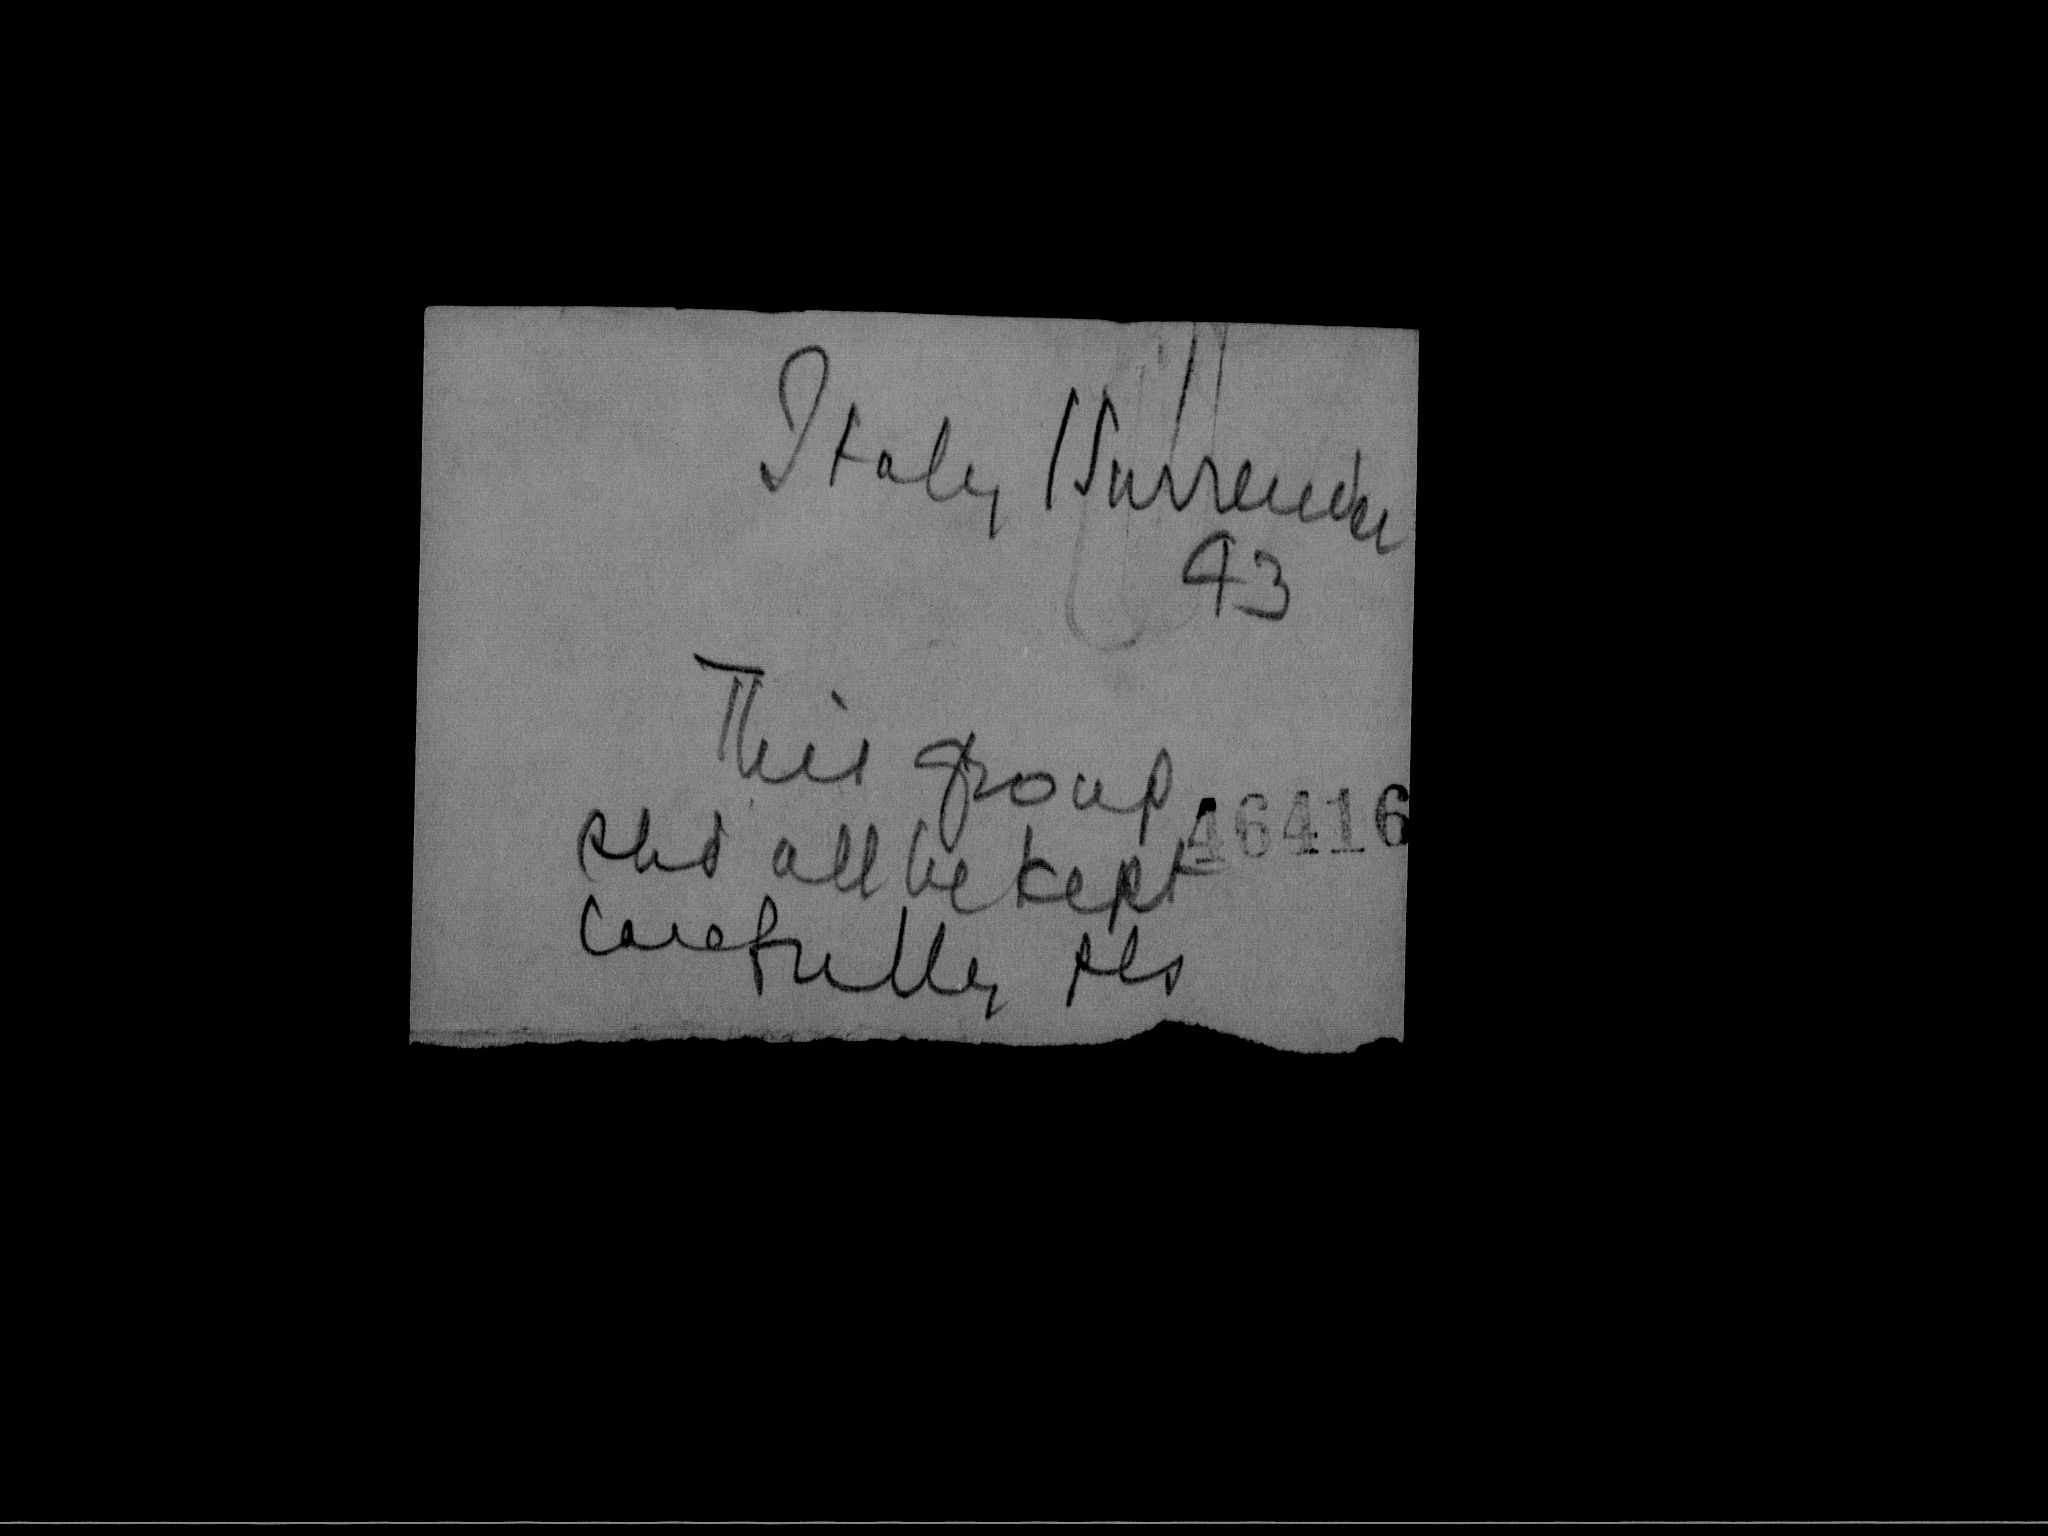 Italy Surrender
43
This group
46416
shd all be kept
carefully